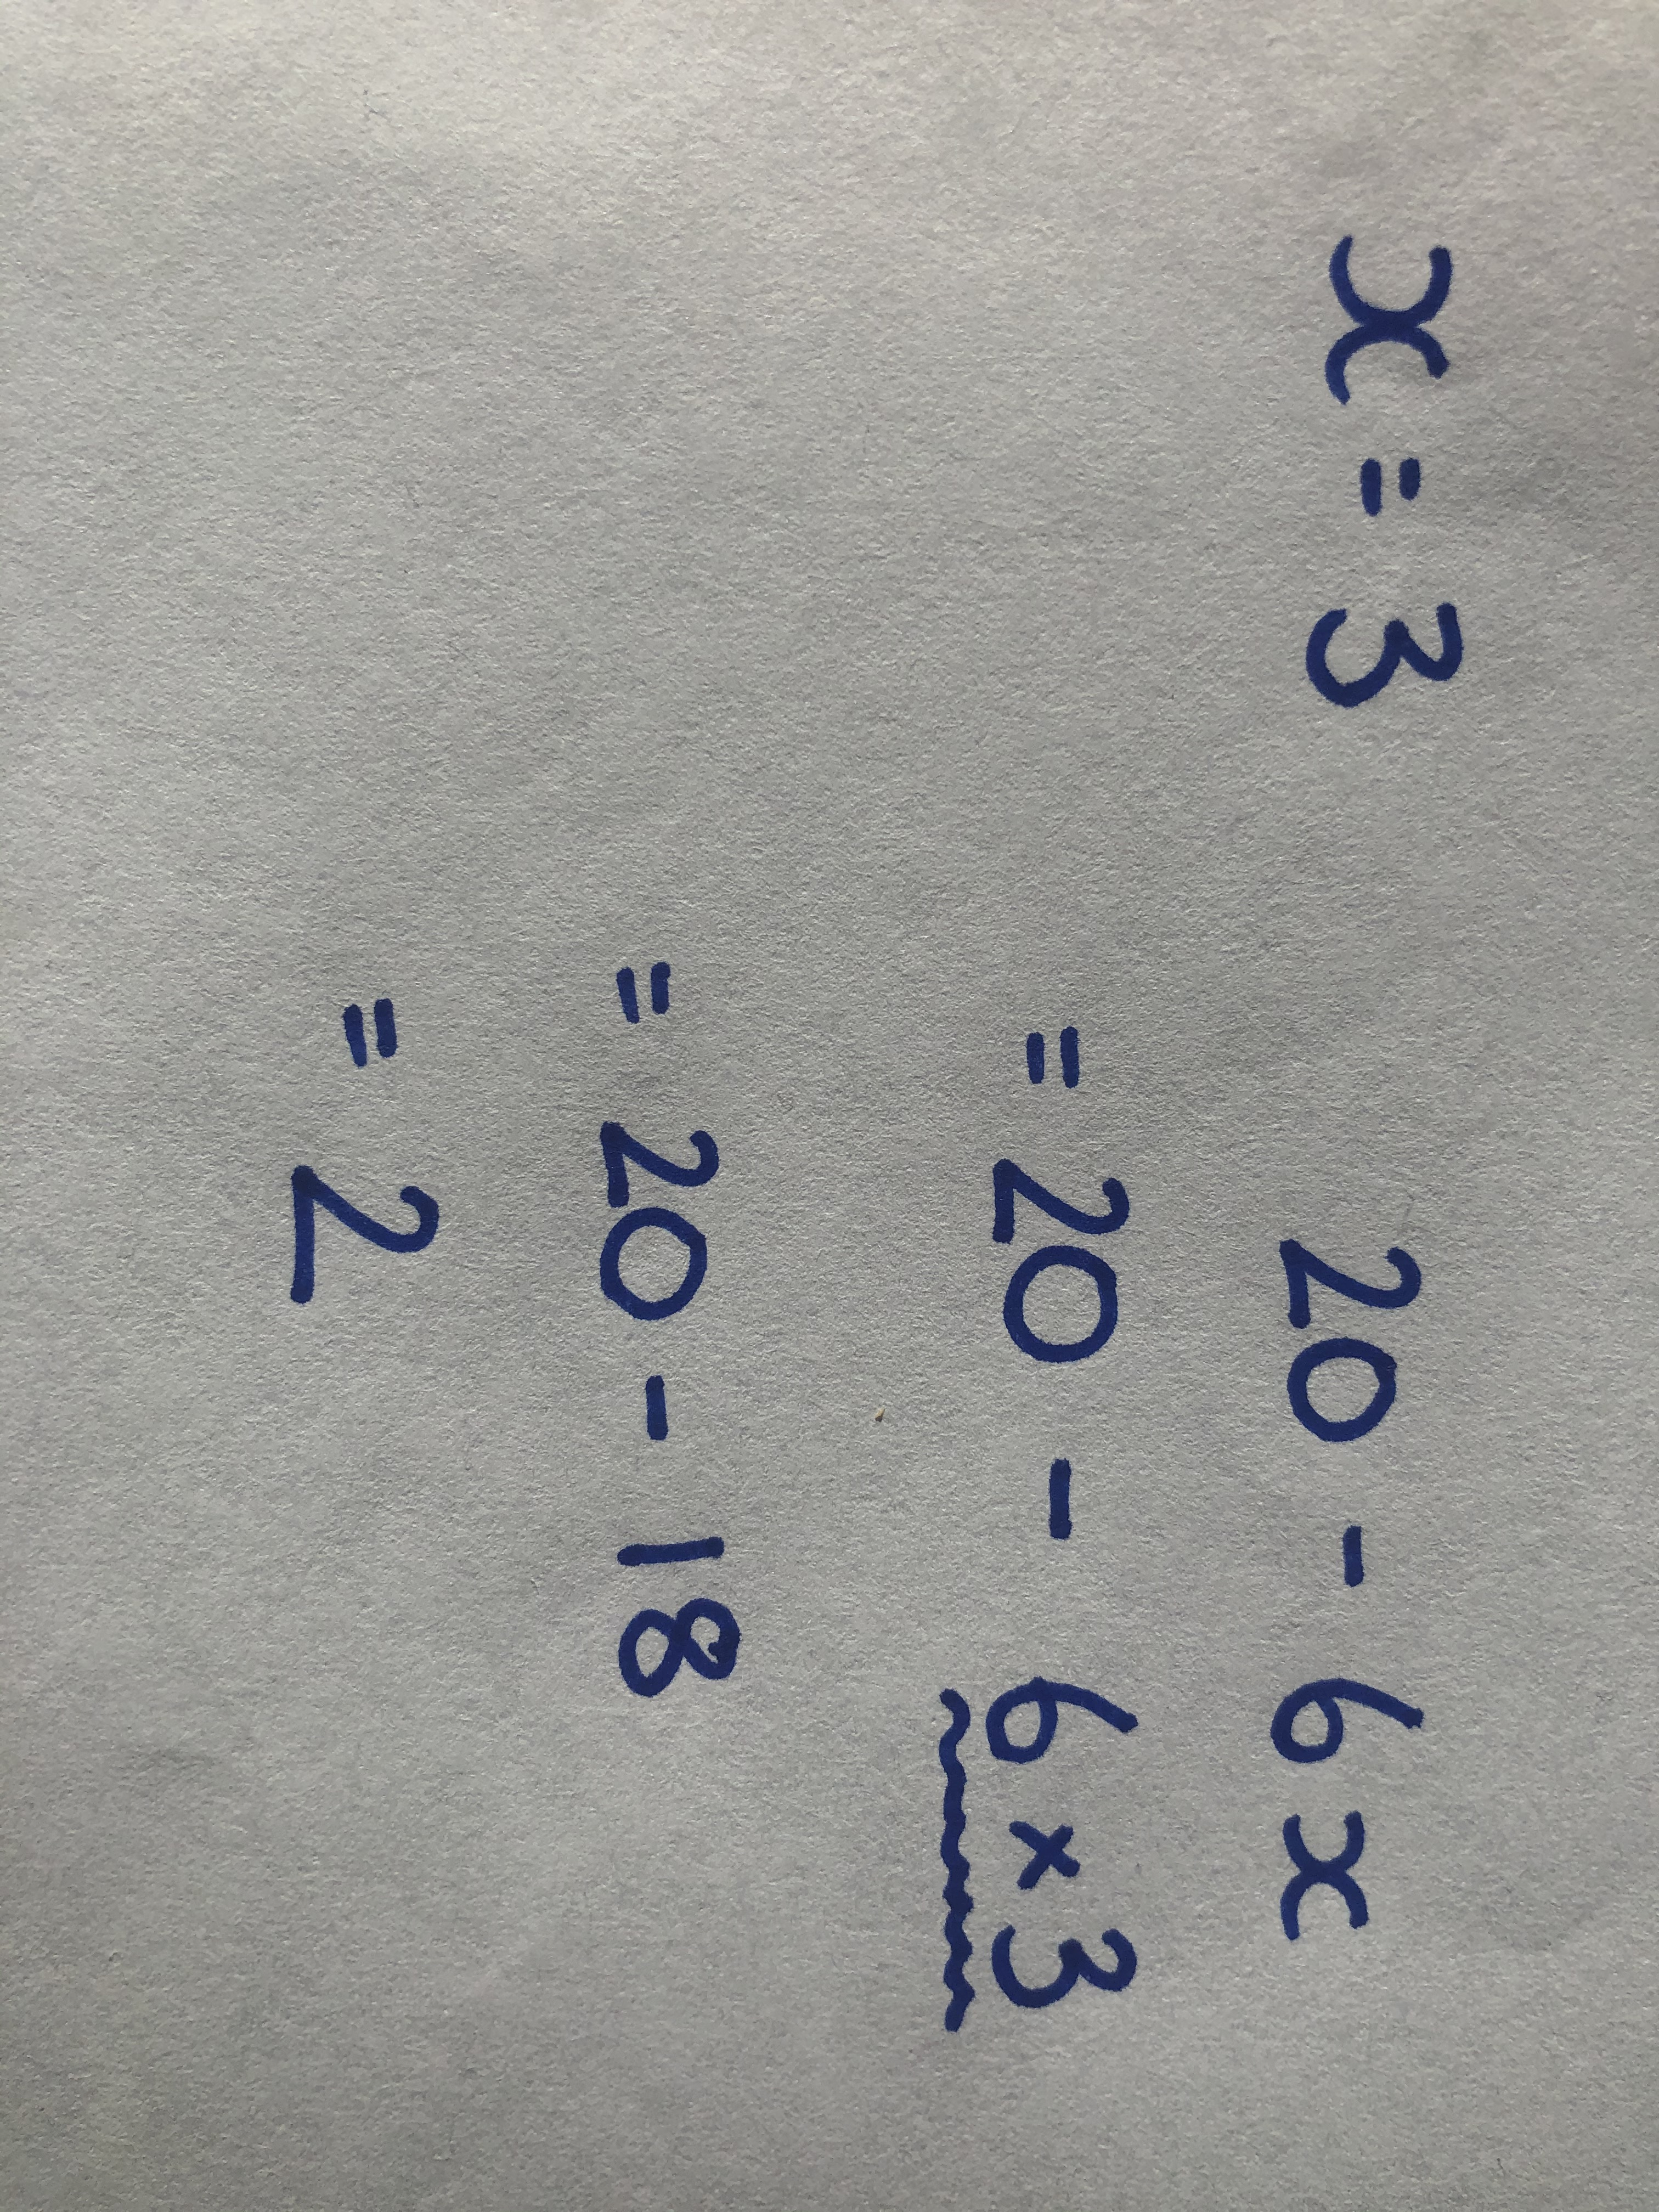 x = 3
20 - 6x
= 20 - 6 × 3
= 20 - 18
= 2